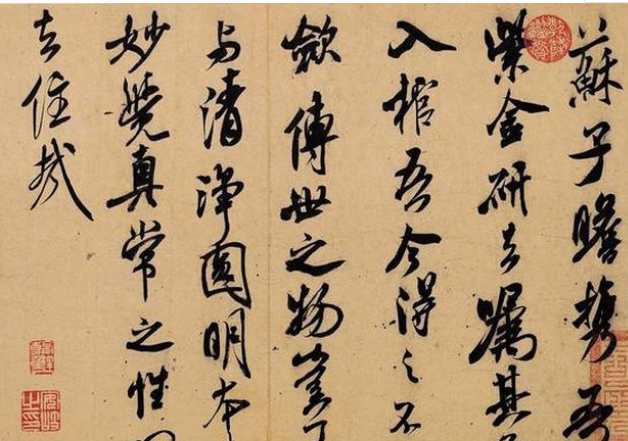 蘇子瞻携吾
紫金研去嘱其
入棺吾今得之不
歛傳世之物豈可
与清淨圓明本
妙覺真常之性
去住哉